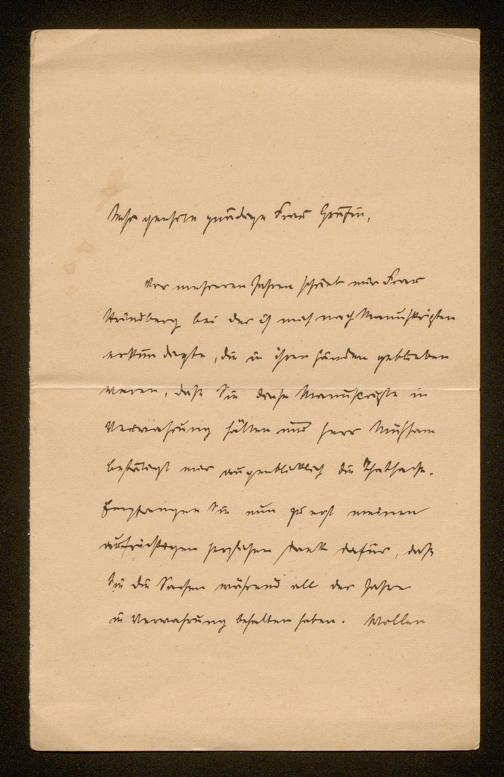 Sehr geehrte gnädige Frau Gräfin,
Vor mehreren Jahren schrieb mir Frau
Strindberg bei der ich mich nach Manuskripten
erkundigte, die in ihren Händen geblieben
waren, daß Sie diese Manuscripte in
Verwahrung hätten und Herr Mühsam
bestätigt mir augenblicklich die Thatsache.
Empfangen Sie nun zu erst meinen
aufrichtigen herzlichen Dank dafür, daß
Sie die Sachen während all der Jahre
in Verwahrung behalten haben. Wollen